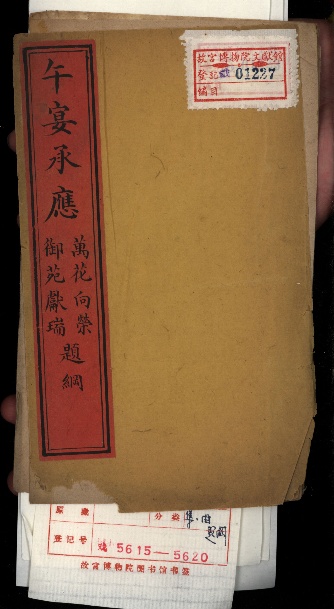 午宴承應
萬花向榮
御苑獻瑞
題綱
故宮博物院文獻館
登記 號 01227
編目
類 分類
登記号 5615—5620
故宫博物院图书馆书签